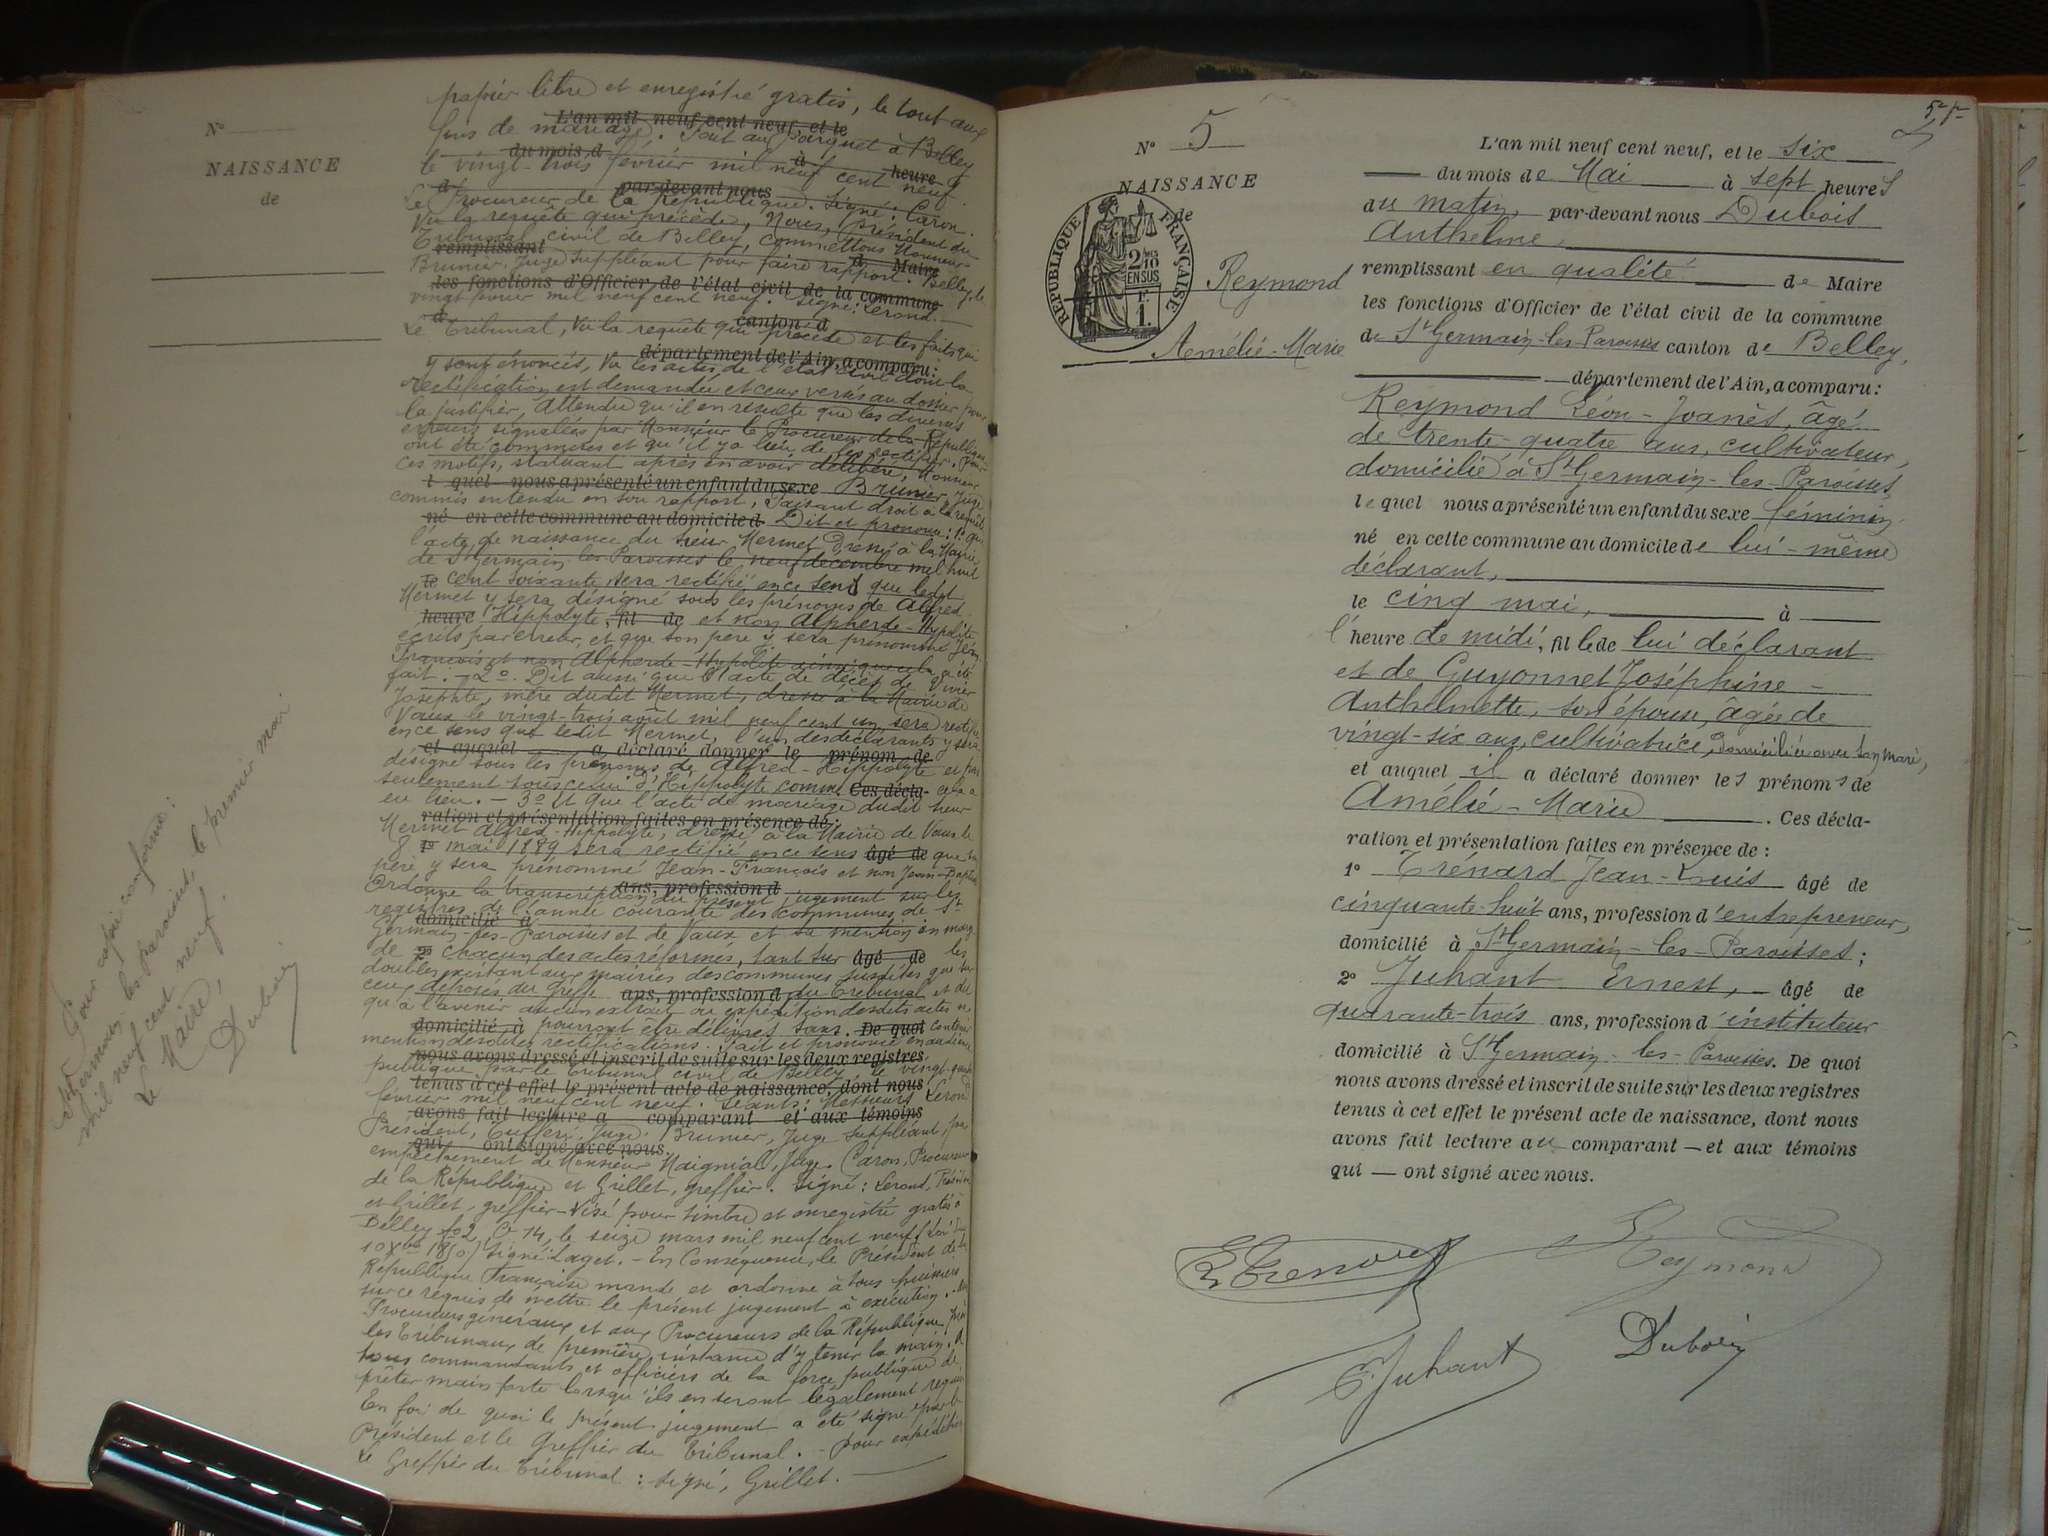 N°
NAISSANCE
de
papier libre et enregistré gratis, le tout aux
L'an mil neuf cent neuf, et le
fins de mariage. Fait au parquet à Belley
du mois d à heure
le vingt-trois février mil neuf cent neuf.
d par-devant nous
Le Procureur de la République. Signé : Caron.
Vu la requête qui précède, Nous, Président du
Tribunal civil de Belley, commettons Monsieur
remplissant d Maire
Brunier, Juge suppléant pour faire rapport. Belley, le
des fonctions d'Officier de l'état civil de la commune
vingt février mil neuf cent neuf. Signé : Lerond.
d canton d
Le Tribunal, Vu la requête qui précède et les faits qui
département de l'Ain, a comparu :
y sont énoncés, Vu les actes de l'état civil dont la
rectification est demandée et ceux versés au dossier pour
la justifier, Attendu qu'il en résulte que les diverses
erreurs signalées par Monsieur le Procureur de la République
ont été commises et qu'il y a lieu de les rectifier. Par
ces motifs, statuant après en avoir délibéré, Monsieur
l quel nous a présenté un enfant du sexe Brunier, Juge
commis entendu en son rapport, Faisant droit à la requête
né en cette commune au domicile d Dit et prononce : 1° que
l'acte de naissance du sieur Mermet dressé à la Mairie
de St Germain les Paroisses le neuf décembre mil huit
le cent soixante sera rectifié en ce sens que ledit
Mermet y sera désigné sous les prénoms de Alfred
heure Hippolyte, fil de et non Alpherde-Hypolite
écrits par erreur, et que son père y sera prénommé Jean
François et non Alpherde-Hypolite ainsi que cela a été
fait. - 2°. Dit aussi que l'acte de décès de Vivier
Josephte, mère dudit Mermet, dressé à la Mairie de
Vaux le vingt-trois août mil neuf cent un, sera rectifié
en ce sens que ledit Mermet, l'un des déclarants y sera
et auquel a déclaré donner le prénom de
désigné sous les prénoms de Alfred-Hippolyte et pas
seulement sous celui d'Hippolyte comme Ces décla- cela a
eu lieu. - 3° Et que l'acte de mariage dudit sieur
ration et présentation faites en présence de :
Mermet Alfred-Hippolyte, dressé à la Mairie de Vaux le
8 1° mai 1889 sera rectifié en ce sens âgé de que son
père y sera prénommé Jean-François et non Jean-Baptiste
Ordonne la transcription du présent jugement sur les
ans, profession d
registres de l'année courante des communes de St
domicilié à
Germain-les-Paroisses et de Vaux et sa mention en marge
de 2° chacun des actes réformés, tant sur âgé de les
doubles existant aux mairies des communes susdites que sur
ceux déposés au Greffe ans, profession d du Tribunal et dit
qu'à l'avenir aucun extrait ou expédition desdits actes ne
domicilié à pourront être délivrés sans. De quoi contenir
mention desdites rectifications. Fait et prononcé en audience
nous avons dressé et inscrit de suite sur les deux registres
publique par le Tribunal civil de Belley le vingt-quatre
tenus à cet effet le présent acte de naissance, dont nous
février mil neuf cent neuf. Séants : Messieurs Lerond
avons fait lecture a comparant et aux témoins
Président, Juge. Brunier, Juge suppléant, par
qui ont signé avec nous.
empêchement de Monsieur Maignial, Juge. Caron, Procureur
de la République et Grillet, greffier. Signé : Lerond, Président
et Grillet, greffier - Visé pour timbre et enregistré gratis à
Belley fo 2, C 14, le seize mars mil neuf cent neuf (Loi du
10 Xbre 1850) signé : Laget. - En Conséquence, le Président de la
République Française mande et ordonne à tous huissiers
sur ce requis de mettre le présent jugement à exécution. Aux
Procureurs généraux et aux Procureurs de la République près
les Tribunaux de première instance d'y tenir la main. A
tous commandants et officiers de la force publique de
prêter main forte lorsqu'ils en seront légalement requis
En foi de quoi le présent jugement a été signé par le
Président et le Greffier du Tribunal. - Pour expédition
Le Greffier du Tribunal : signé, Grillet.
Pour copie conforme :
St Germain-les-Paroisses, le premier mai
mil neuf cent neuf.
Le Maire,
Dubois
N° 5
NAISSANCE
de
RÉPUBLIQUE FRANÇAISE
2/10 EN SUS
1 F.
Reymond
Amélie-Marie
L'an mil neuf cent neuf, et le six
du mois de Mai à sept heures
au matin, par-devant nous Dubois
Anthelme,
remplissant en qualité de Maire
les fonctions d'Officier de l'état civil de la commune
de St Germain-les-Paroisses canton de Belley,
département de l'Ain, a comparu :
Reymond Léon-Joanès, âgé
de trente-quatre ans, cultivateur,
domicilié à St Germain-les-Paroisses
lequel nous a présenté un enfant du sexe féminin
né en cette commune au domicile de lui-même
déclarant,
le cinq mai, à
l'heure de midi, fil le de lui déclarant
et de Guyonnet Joséphine-
Anthelmette, son épouse, âgée de
vingt-six ans, cultivatrice, domiciliée avec son mari,
et auquel il a déclaré donner les prénoms de
Amélie-Marie. Ces décla-
ration et présentation faites en présence de :
1° Trénard Jean-Louis âgé de
cinquante-huit ans, profession d'entrepreneur,
domicilié à St Germain-les-Paroisses ;
2° Juhant Ernest, âgé de
quarante-trois ans, profession d'instituteur
domicilié à St Germain-les-Paroisses. De quoi
nous avons dressé et inscrit de suite sur les deux registres
tenus à cet effet le présent acte de naissance, dont nous
avons fait lecture au comparant — et aux témoins
qui — ont signé avec nous.
Reymond
E. Juhant
Dubois